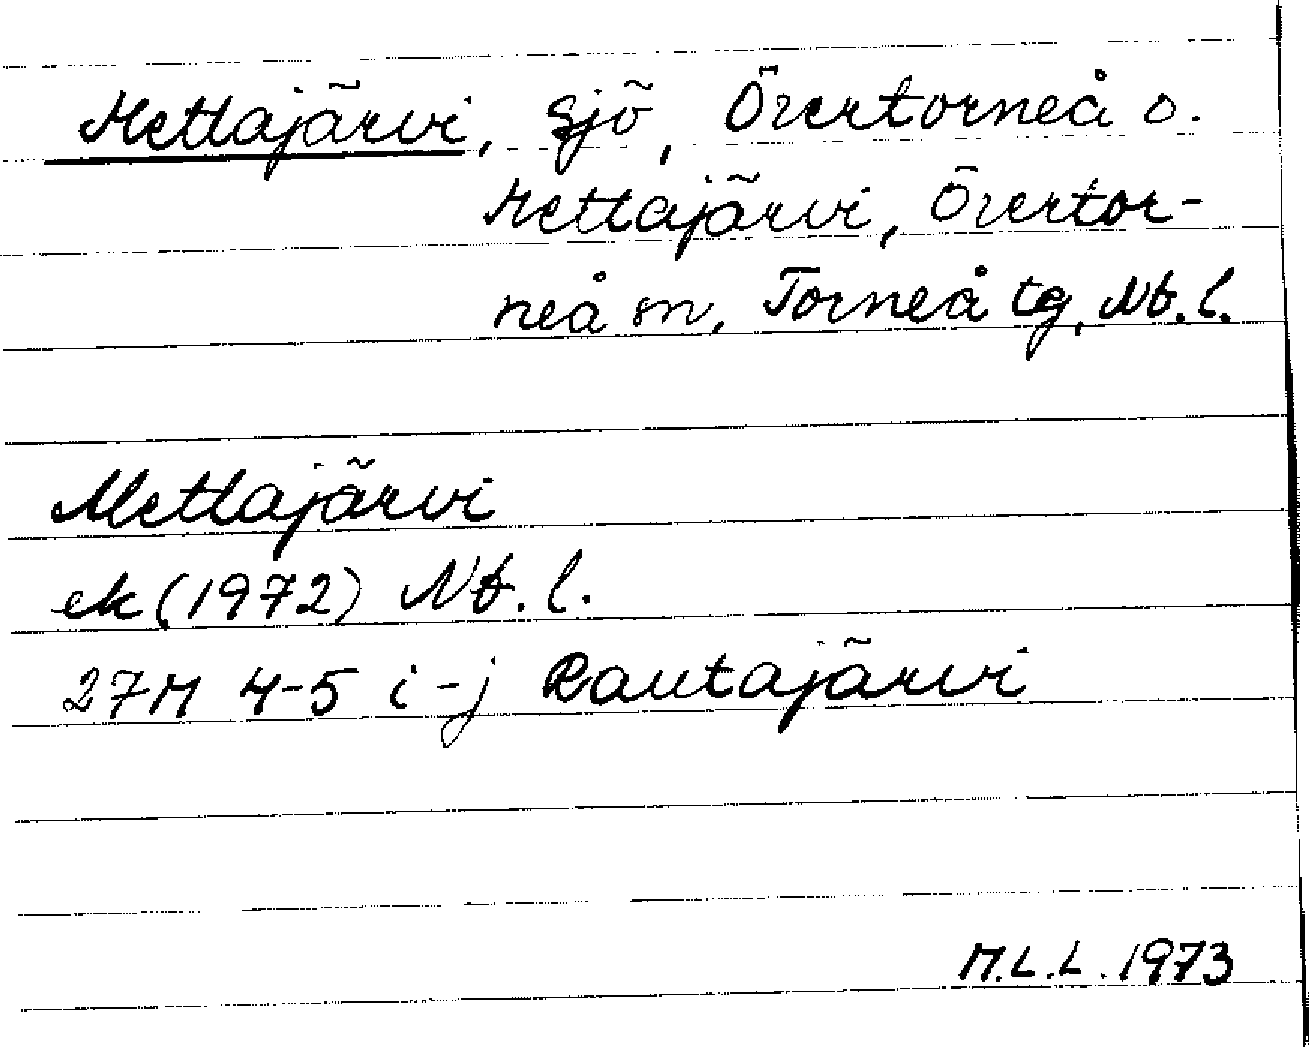 Mettäjärvi, sjö, Övertorneå o.
Mettäjärvi, Övertor-
neå sn, Torneå tg, Nb. l.
Mettäjärvi
ek (1972) Nb. l.
27M 4-5 i-j Rautajärvi
M.L.L. 1973